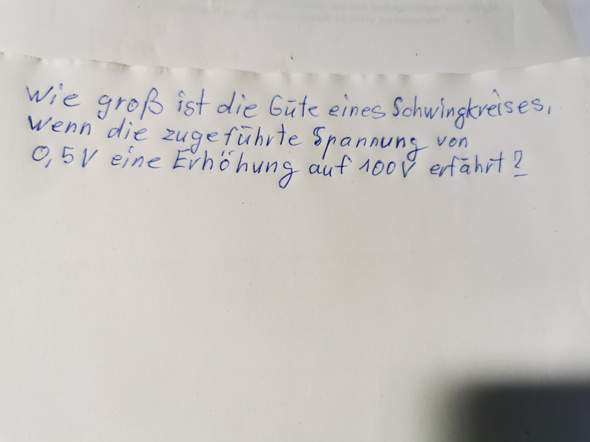 Wie groß ist die Güte eines Schwingkreises,
wenn die zugeführte Spannung von
0,5V eine Erhöhung auf 100V erfährt?